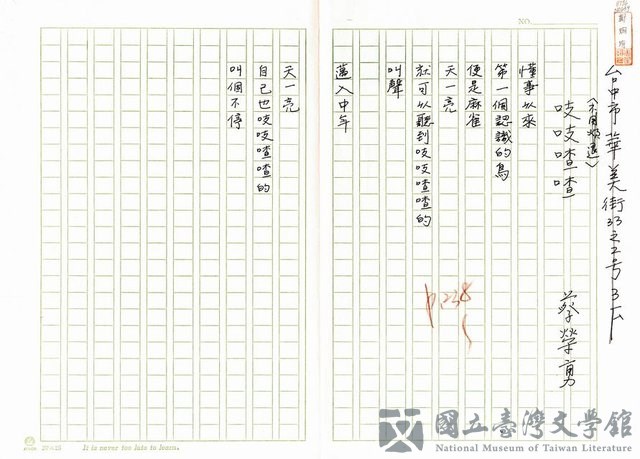 台中市華美街33之2号3F
吱吱喳喳
蔡榮勇
懂事以來
第一個認識的鳥
便是麻雀
天一亮
就可以聽到吱吱喳喳的
叫聲
邁入中年
天一亮
自己也吱吱喳喳的
叫個不停
NO.
P.238
20×25
It is never too late to learn.
國立臺灣文學館
National Museum of Taiwan Literature